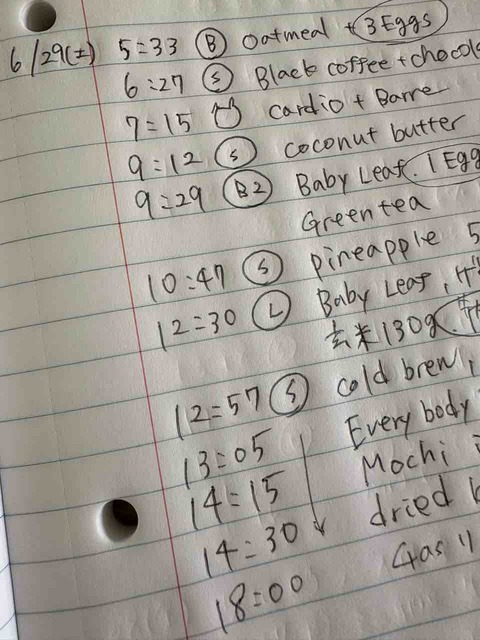 6/29(土) 5:33 B Oatmeal + 3 Eggs
6:27 S Black coffee + chocol
7:15 Cardio + Barre
9:12 S coconut butter
9:29 B2 Baby Leaf. 1 Egg
Green tea
10:47 S pineapple 5
12:30 L Baby Leaf,
玄米130g.
12:57 S cold brew,
13:05 Every body
14:15 Mochi
14:30 dried
18:00 Gas